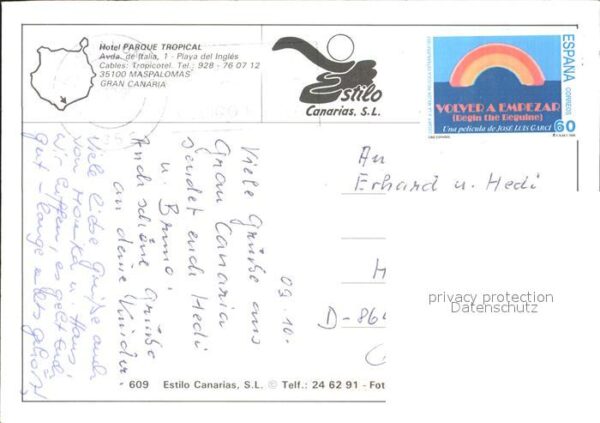 Hotel PARQUE TROPICAL
Avda. de Italia, 1 - Playa del Inglés
Cables: Tropicorel. Tel.: 928 - 76 07 12
35100 MASPALOMAS
GRAN CANARIA
Estilo
Canarias, S.L.
ESPAÑA
CORREOS
VOLVER A EMPEZAR
(Begin the Beguine)
Una película de JOSÉ LUIS GARCI
60
09.10.
Viele Grüße aus
Gran Canaria
sendet euch Hedi
u. Bruno!
Auch schöne Grüße
an deine Kinder.
Viele liebe Grüße auch
von Monika u. Hans,
Wir hoffen, es geht euch
gut – lange nichts gehört
An
Erhard u. Hedi
H
D-864
privacy protection
Datenschutz
609 Estilo Canarias, S.L. © Telf.: 24 62 91 - Fot